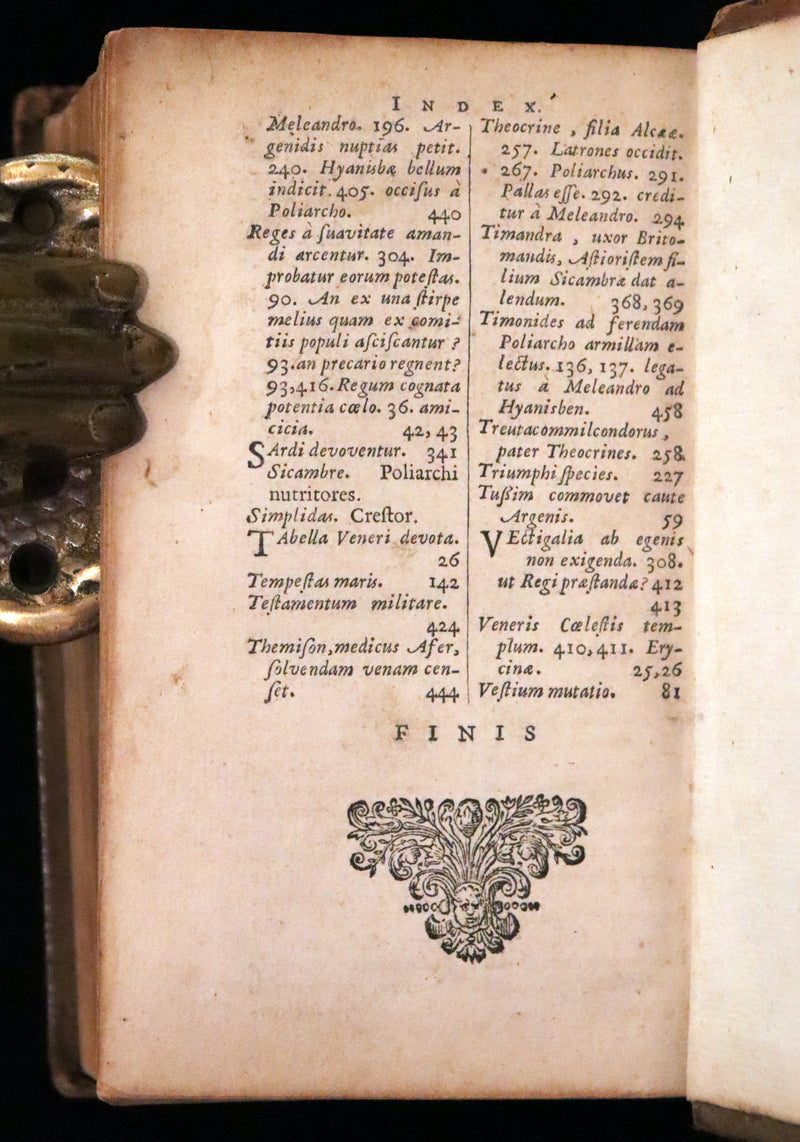 INDEX.
Meleandro. 196. Ar-
genidis nuptias petit.
240. Hyanisbæ bellum
indicit. 405. occiſus à
Poliarcho. 440
Reges à ſuavitate aman-
di arcentur. 304. Im-
probatur eorum poteſtas.
90. An ex una ſtirpe
melius quam ex comi-
tiis populi aſciſcantur ?
93. an precario regnent?
93,416. Regum cognata
potentia cœlo. 36. ami-
cicia. 42, 43
SArdi devoventur. 341
Sicambre. Poliarchi
nutritores.
Simplidas. Creſtor.
TAbella Veneri devota.
26
Tempeſtas maris. 142
Teſtamentum militare.
424
Themiſon, medicus Afer,
ſolvendam venam cen-
ſet. 444
Theocrine , filia Alcææ.
257. Latrones occidit.
267. Poliarchus. 291.
Pallas eſſe. 292. credi-
tur à Meleandro. 294
Timandra , uxor Brito-
mandis, Aſtioriſtem fi-
lium Sicambræ dat a-
lendum. 368, 369
Timonides ad ferendam
Poliarcho armillam e-
lectus. 136, 137. lega-
tus à Meleandro ad
Hyanisben. 458
Treutacommilcondorus ,
pater Theocrines. 258.
Triumphi ſpecies. 227
Tuſſim commovet caute
Argenis. 59
VEctigalia ab egenis
non exigenda. 308.
ut Regi præſtanda? 412
413
Veneris Cœleſtis tem-
plum. 410, 411. Ery-
cinæ. 25,26
Veſtium mutatio. 81
FINIS